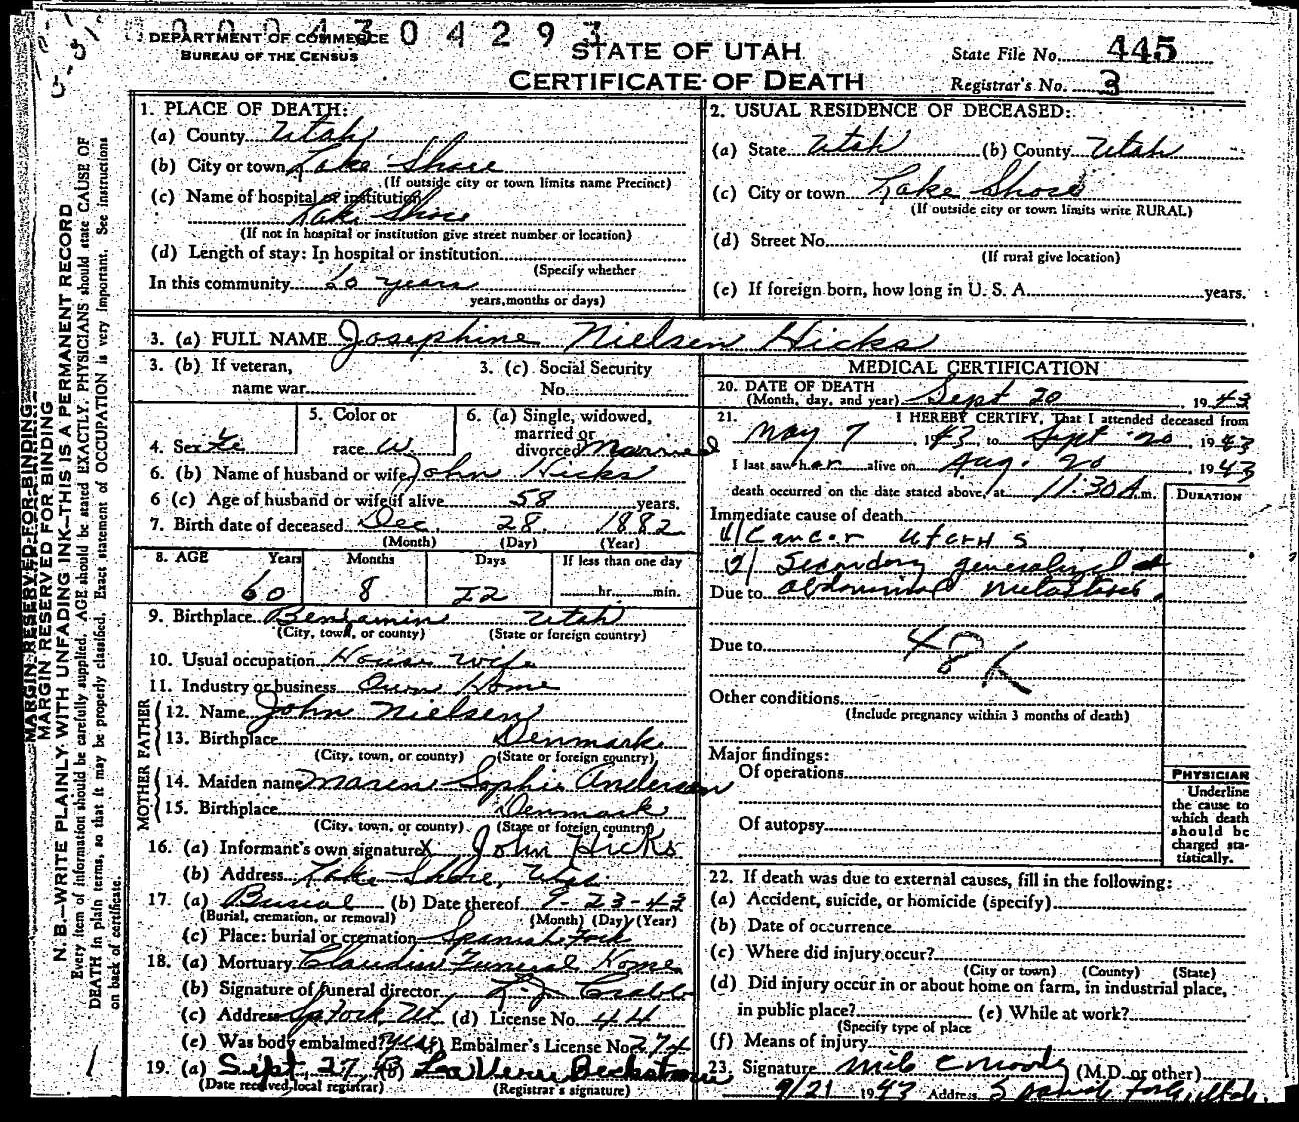 0004304293
DEPARTMENT OF COMMERCE
BUREAU OF THE CENSUS
STATE OF UTAH
CERTIFICATE OF DEATH
State File No. 445
Registrar's No. 3
MARGIN RESERVED FOR BINDING
MARGIN RESERVED FOR BINDING
N. B.—WRITE PLAINLY WITH UNFADING INK—THIS IS A PERMANENT RECORD
Every item of information should be carefully supplied. AGE should be stated EXACTLY. PHYSICIANS should state CAUSE OF
DEATH in plain terms, so that it may be properly classified. Exact statement of OCCUPATION is very important. See instructions
on back of certificate.
1. PLACE OF DEATH:
(a) County Utah
(b) City or town Lake Shore
(If outside city or town limits name Precinct)
(c) Name of hospital or institution
Lake Shore
(If not in hospital or institution give street number or location)
(d) Length of stay: In hospital or institution
(Specify whether
In this community 60 years
years, months or days)
2. USUAL RESIDENCE OF DECEASED:
(a) State Utah (b) County Utah
(c) City or town Lake Shore
(If outside city or town limits write RURAL)
(d) Street No.
(If rural give location)
(e) If foreign born, how long in U. S. A. years.
3. (a) FULL NAME Josephine Nielsen Hicks
3. (b) If veteran,
name war
3. (c) Social Security
No.
4. Sex Fe
5. Color or
race W.
6. (a) Single, widowed,
married or
divorced Married
6. (b) Name of husband or wife John Hicks
6 (c) Age of husband or wife if alive 58 years.
7. Birth date of deceased Dec. 28 1882
(Month) (Day) (Year)
8. AGE Years Months Days If less than one day
60 8 22 hr. min.
9. Birthplace Benjamin Utah
(City, town, or county) (State or foreign country)
10. Usual occupation House wife
11. Industry or business Own Home
FATHER
12. Name John Nielsen
13. Birthplace Denmark
(City, town, or county) (State or foreign country)
MOTHER
14. Maiden name Maren Sophie Anderson
15. Birthplace Denmark
(City, town, or county) (State or foreign country)
16. (a) Informant's own signature X John Hicks
(b) Address Lake Shore, Utah
17. (a) Burial (b) Date thereof 9-23-43
(Burial, cremation, or removal) (Month) (Day) (Year)
(c) Place: burial or cremation Spanish Fork
18. (a) Mortuary Claudin Funeral Home
(b) Signature of funeral director
(c) Address Sp Fork Ut. (d) License No. 44
(e) Was body embalmed? Yes (f) Embalmer's License No. 274
19. (a) Sept. 27, 43 (b) La Verne Beckstrom
(Date received local registrar) (Registrar's signature)
MEDICAL CERTIFICATION
20. DATE OF DEATH
(Month, day, and year) Sept 20 1943
21. I HEREBY CERTIFY, That I attended deceased from
May 7, 1943, to Sept 20, 1943
I last saw her alive on Aug. 20, 1943
death occurred on the date stated above, at 11:30 A.m.
DURATION
Immediate cause of death
1/ Cancer uterus
2/ Secondary generalized
Due to abdominal metastasis.
Due to 48K
Other conditions
(Include pregnancy within 3 months of death)
Major findings:
Of operations
Of autopsy
PHYSICIAN
Underline
the cause to
which death
should be
charged sta-
tistically.
22. If death was due to external causes, fill in the following:
(a) Accident, suicide, or homicide (specify)
(b) Date of occurrence
(c) Where did injury occur?
(City or town) (County) (State)
(d) Did injury occur in or about home on farm, in industrial place,
in public place? (e) While at work?
(Specify type of place
(f) Means of injury
23. Signature Milo C Moody (M.D. or other)
9/21 1943 Address Spanish Fork, Utah.